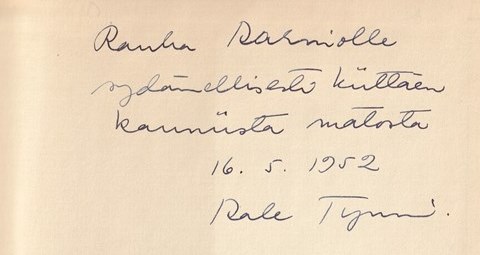 Rauha Aarniolle
sydämellisesti kiittäen
kauniista matosta
16. 5. 1952
Aale Tynni.